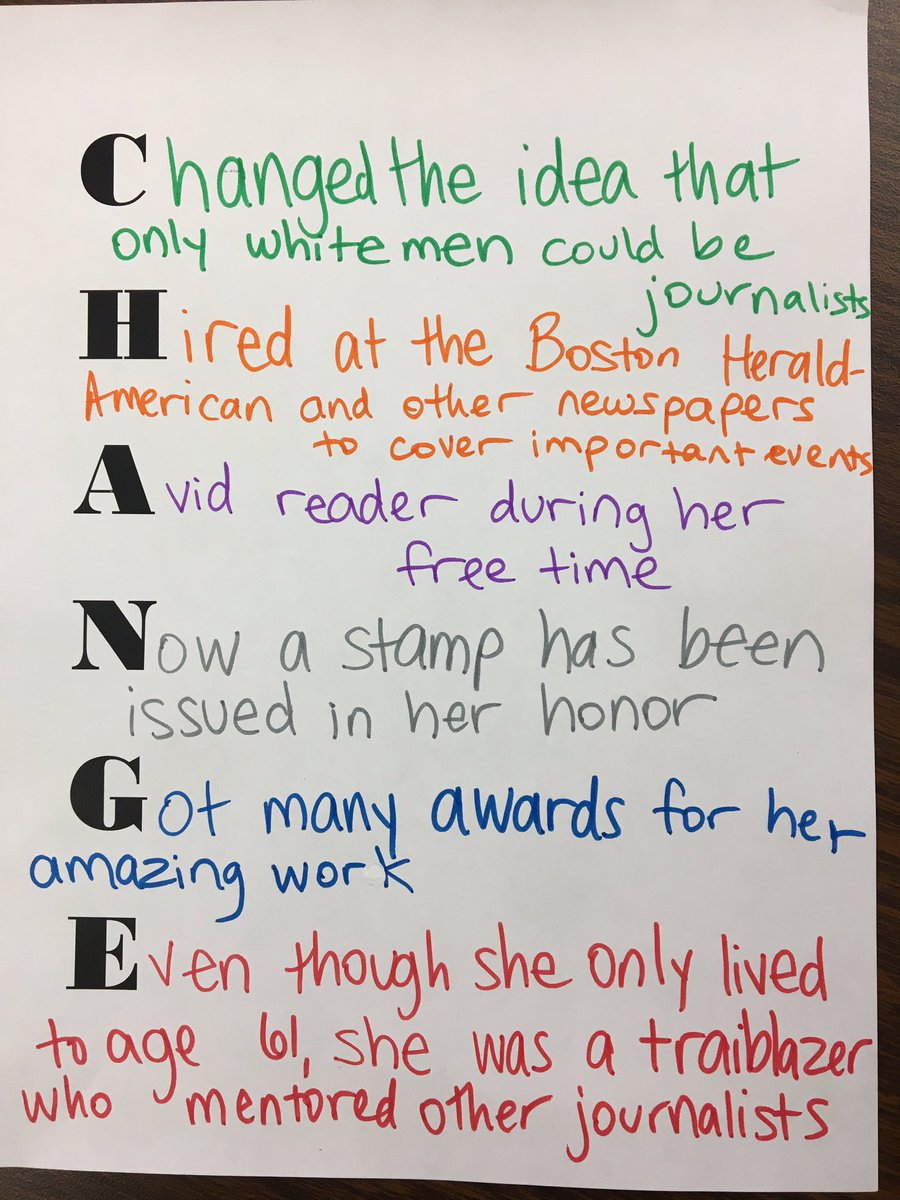 Changed the idea that
only white men could be
journalists
Hired at the Boston Herald-
American and other newspapers
to cover important events
Avid reader during her
free time
Now a stamp has been
issued in her honor
Got many awards for her
amazing work
Even though she only lived
to age 61, she was a traiblazer
who mentored other journalists